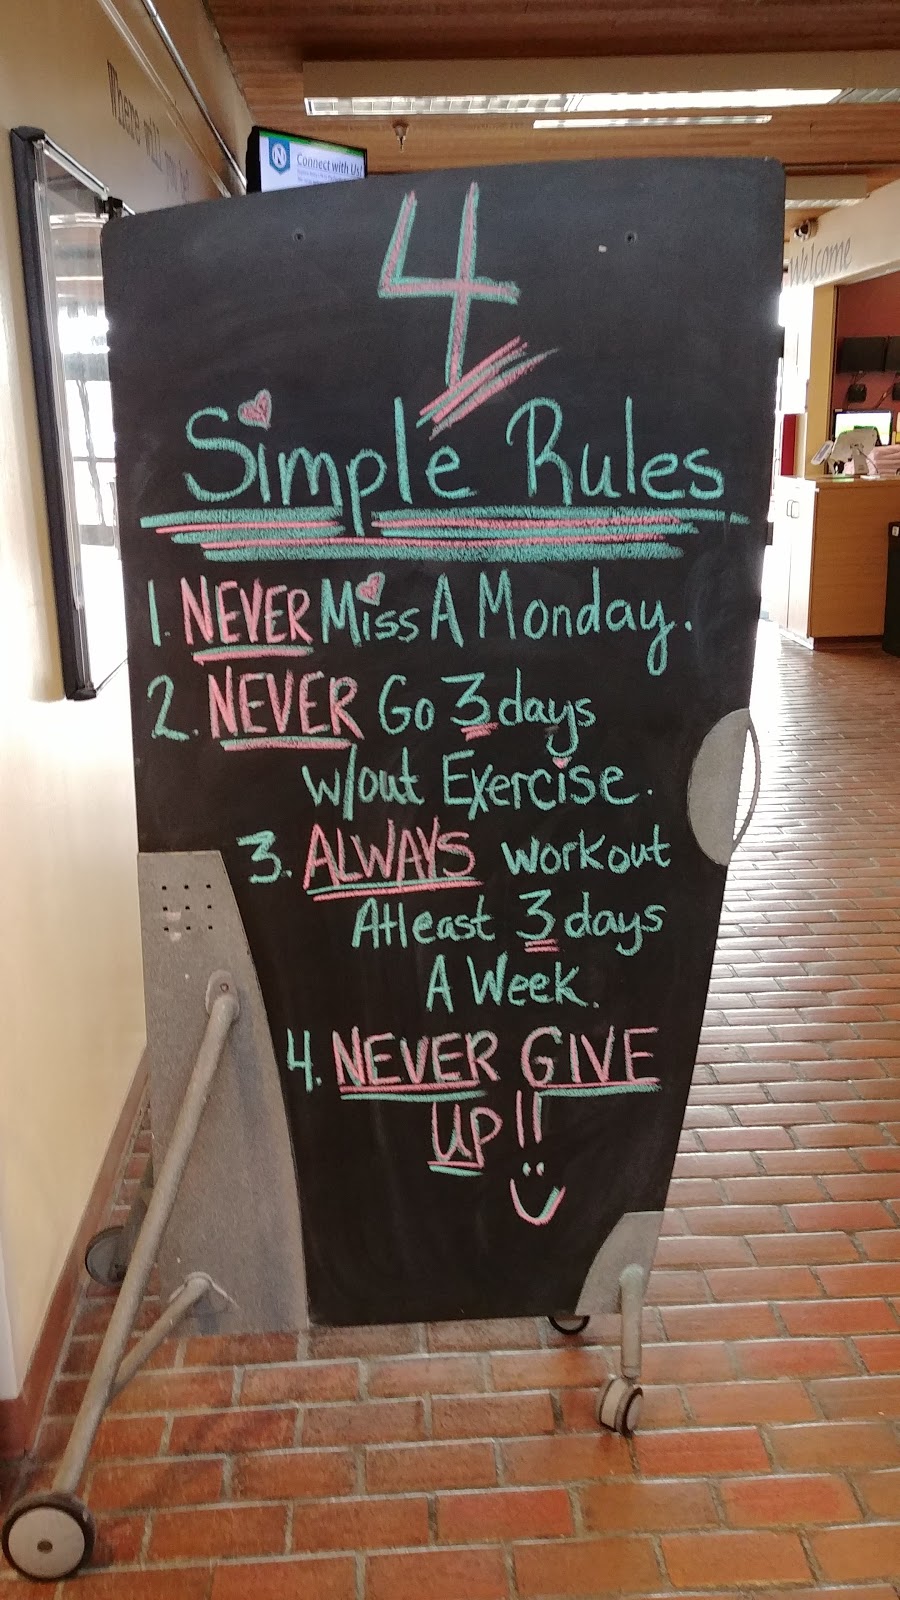 Where will you be
Connect with Us!
Welcome
4
Simple Rules
1. NEVER Miss A Monday.
2. NEVER Go 3 days
w/out Exercise.
3. ALWAYS workout
Atleast 3 days
A Week.
4. NEVER GIVE
UP!!